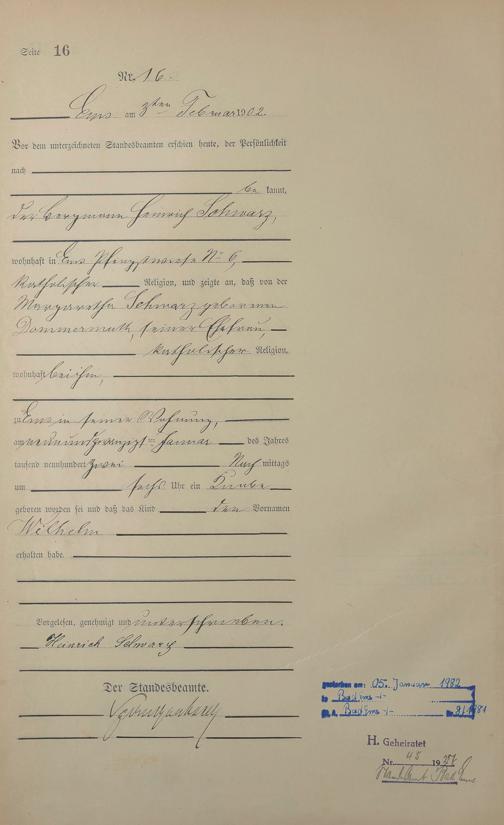 Seite 16
Nr. 16.
Ems am 3ten Februar 1902
Vor dem unterzeichneten Standesbeamten erschien heute, der Persönlichkeit
nach
be kannt,
der Bergmann Heinrich Schwarz,
wohnhaft in Ems No 6,
katholischer Religion, und zeigte an, daß von der
Margaretha Schwarz geborenen
Dommermuth, seiner Ehefrau,
katholischer Religion,
wohnhaft bei ihm,
zu Ems in seiner Wohnung,
am neunundzwanzigsten Januar des Jahres
tausend neunhundert zwei Nach mittags
um sechs Uhr ein Knabe
geboren worden sei und daß das Kind den Vornamen
Wilhelm
erhalten habe.
Vorgelesen, genehmigt und unterschrieben.
Heinrich Schwarz
Der Standesbeamte.
gestorben am: 05. Januar 1982
in Bad Ems
St. A. Bad Ems
H. Geheiratet
Nr. 45 19
Standesamt Bad Ems